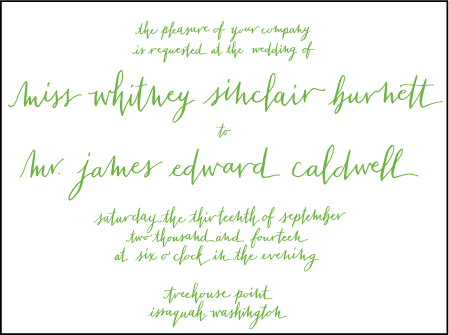 the pleasure of your company
is requested at the wedding of
miss whitney sinclair burnett
to
mr. james edward caldwell
saturday the thirteenth of september
two thousand and fourteen
at six o'clock in the evening
treehouse point
issaquah washington